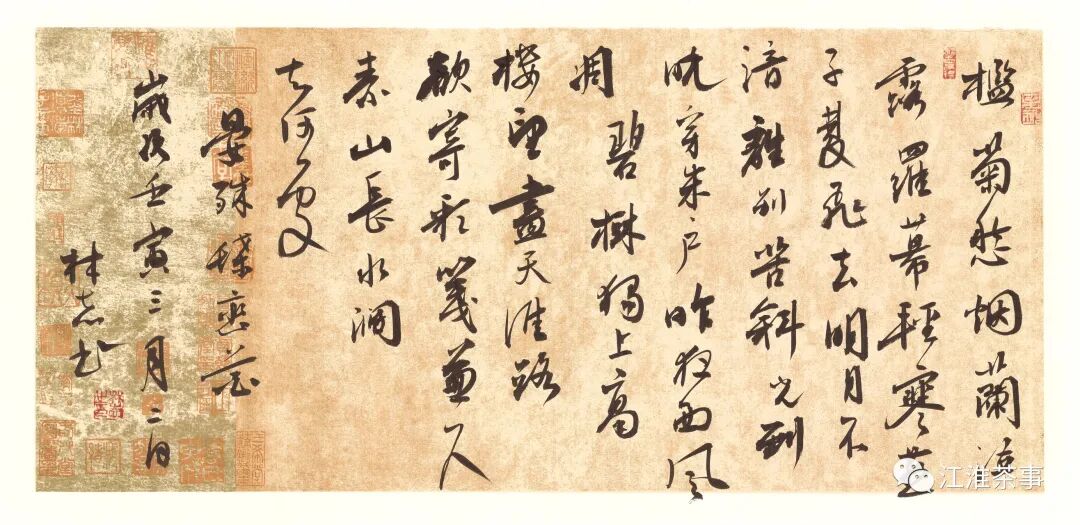 檻菊愁烟蘭泣
露羅幕輕寒燕
子雙飛去明月不
諳離別苦斜光到
曉穿朱户昨夜西風
凋碧樹獨上高
樓望盡天涯路
欲寄彩箋兼尺
素山長水闊
知何處
晏殊蝶戀花
歲次壬寅三月二日
林志書
江淮茶事